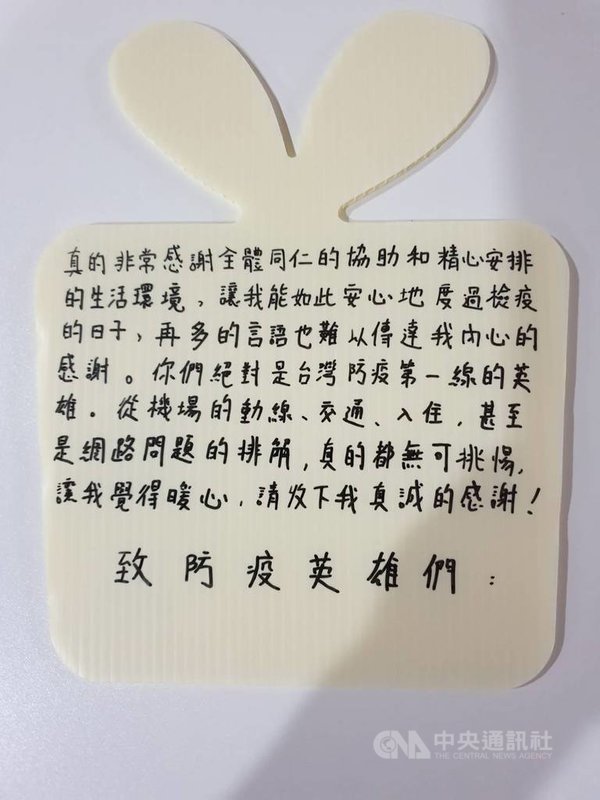 真的非常感謝全體同仁的協助和精心安排
的生活環境，讓我能如此安心地度過檢疫
的日子，再多的言語也難以傳達我內心的
感謝。你們絕對是台灣防疫第一線的英
雄。從機場的動線、交通、入住，甚至
是網路問題的排解，真的都無可挑惕，
讓我覺得暖心，請收下我真誠的感謝！
致防疫英雄們：
CNA 中央通訊社
THE CENTRAL NEWS AGENCY